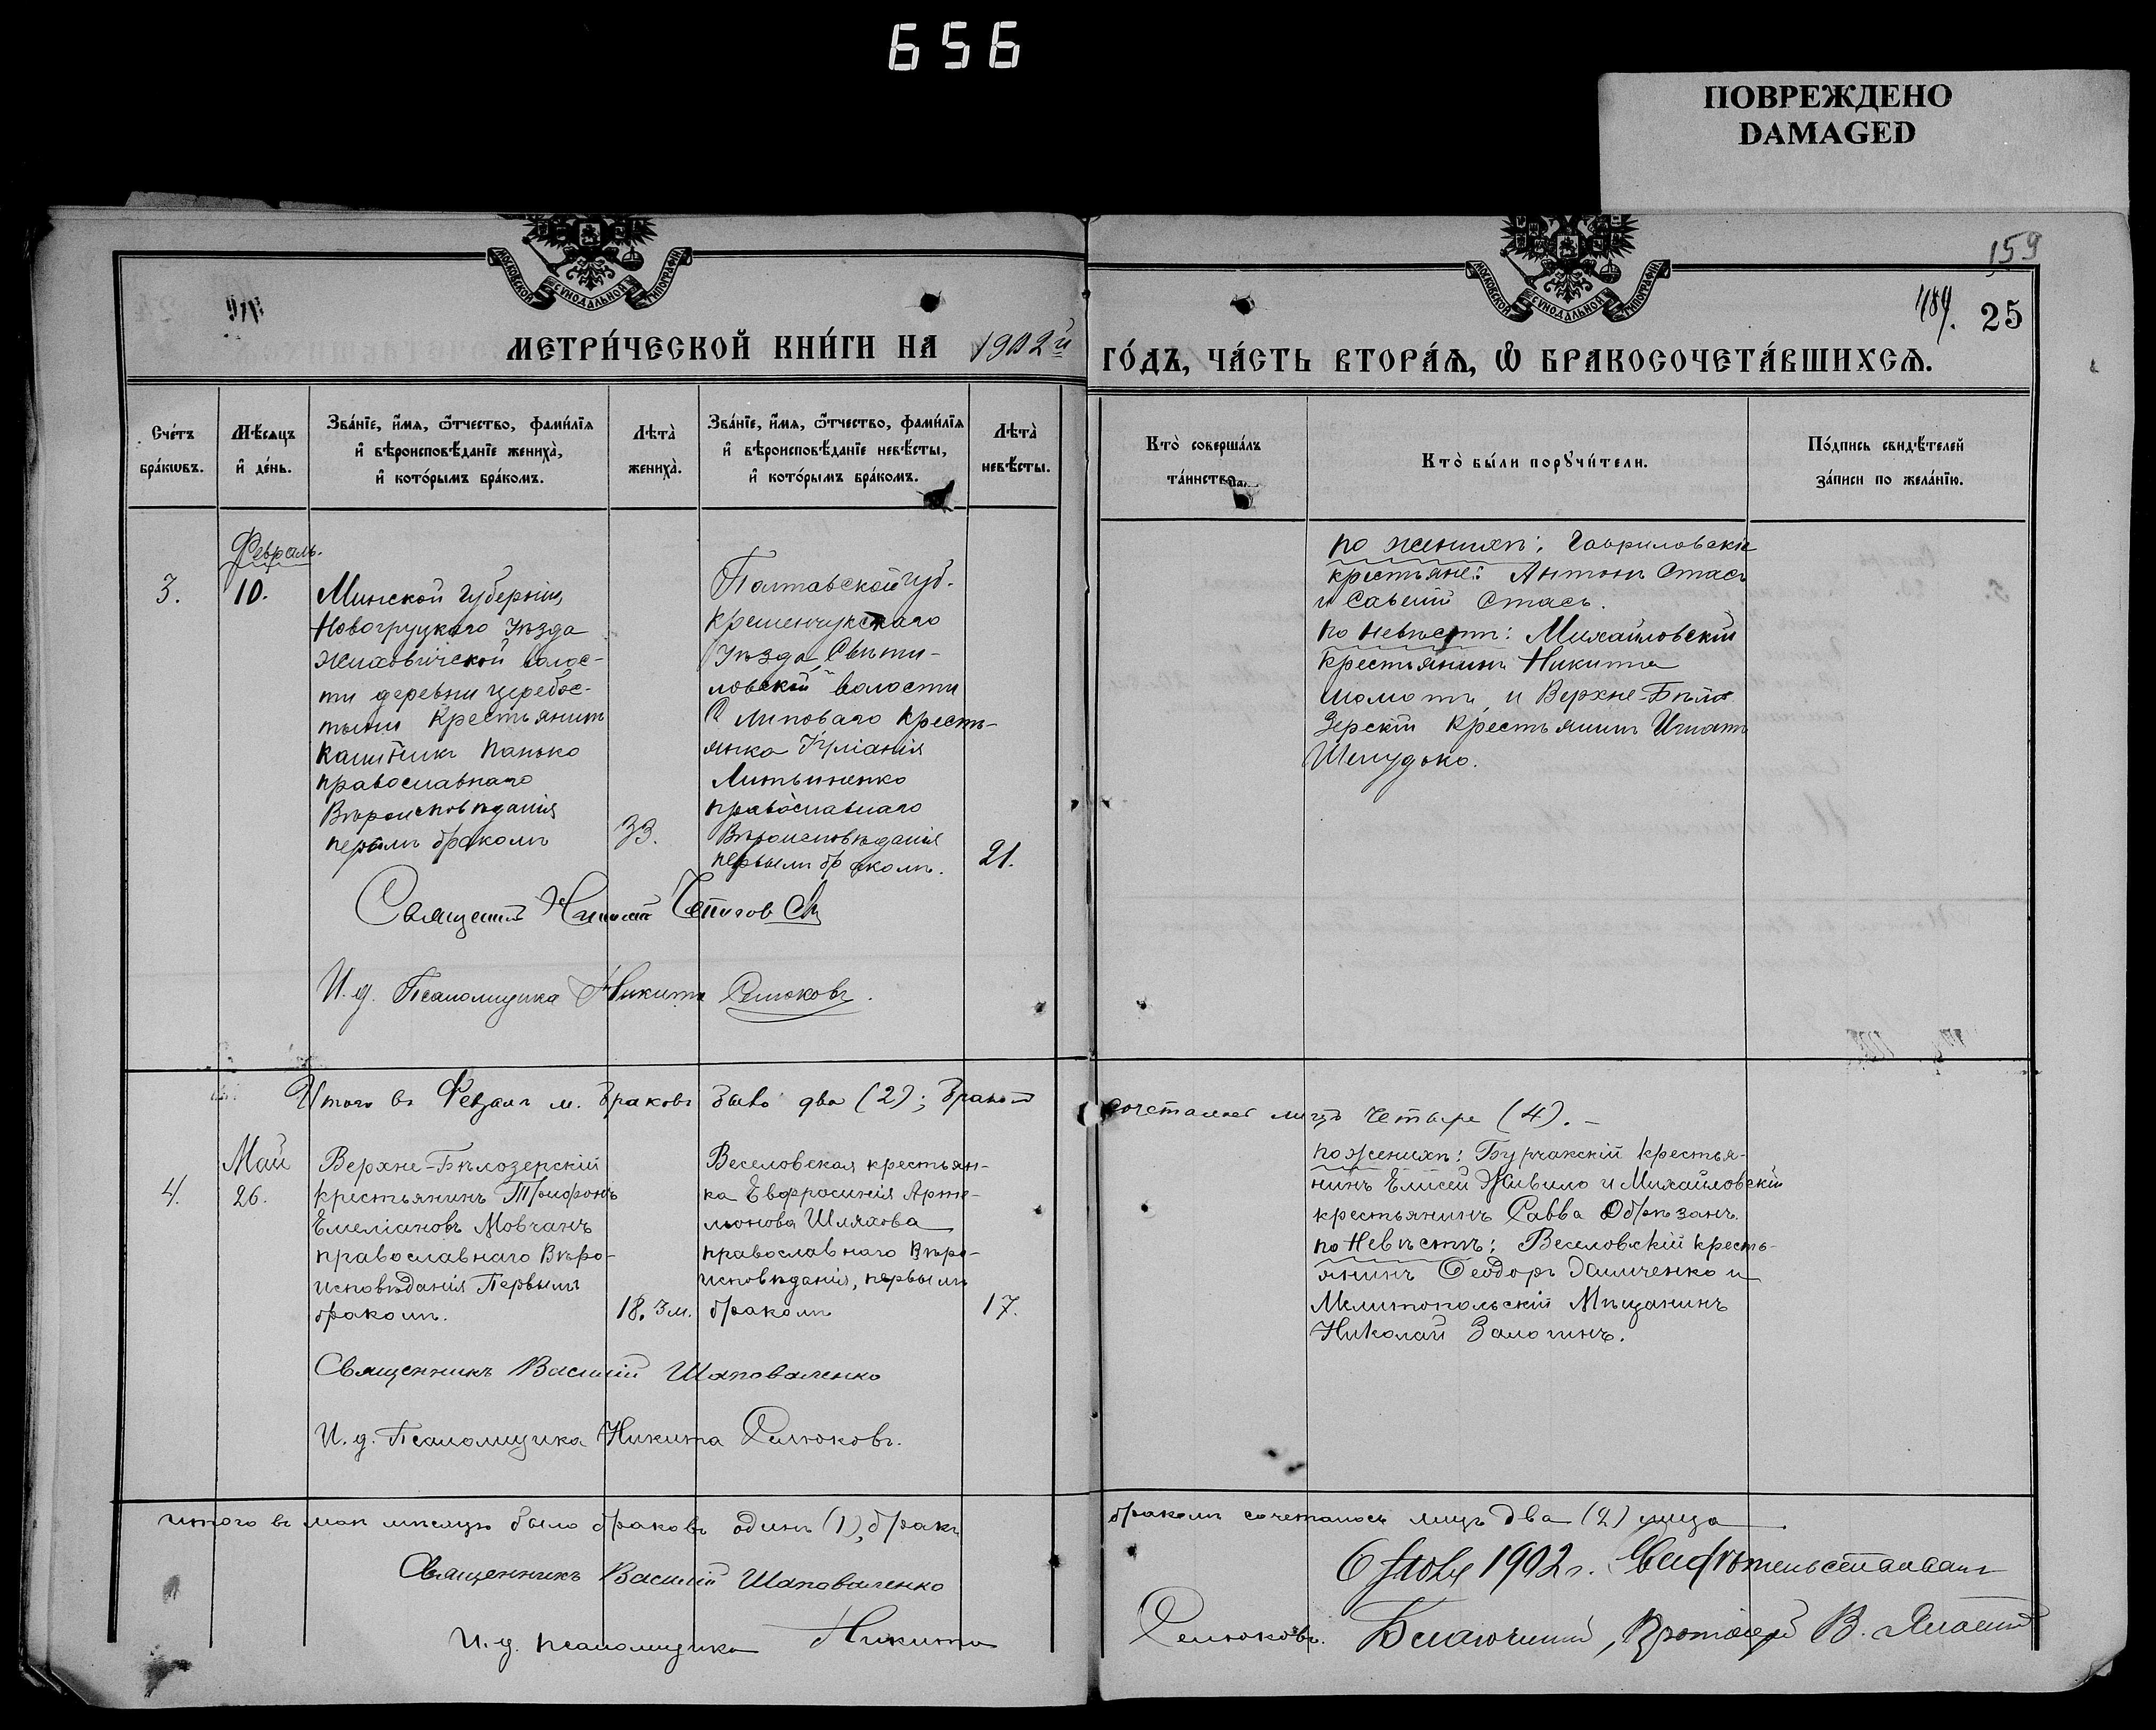 656
ПОВРЕЖДЕНО
DAMAGED
МОСКОВСКОЙ СѴНОДАЛЬНОЙ ТИПОГРАФІИ
МОСКОВСКОЙ СѴНОДАЛЬНОЙ ТИПОГРАФІИ
159
25
МЕТРИ́ЧЕСКОЙ КНИ́ГИ НА 1902й
ГО́ДЪ, ЧА́СТЬ ВТОРА́Ѧ, Ѡ БРАКОСОЧЕТА́ВШИХСѦ.
Сче́тъ
бра́кωвъ.
Мѣ́сѧцъ
и҆ де́нь.
Зва́нїе, и҆́мѧ, ѻ҆́тчество, фами́лїѧ
и҆ вѣроисповѣ́данїе жениха̀,
и҆ кото́рымъ бра́комъ.
Лѣ́та
жениха̀.
Зва́нїе, и҆́мѧ, ѻ҆́тчество, фами́лїѧ
и҆ вѣроисповѣ́данїе невѣ́сты,
и҆ кото́рымъ бра́комъ.
Лѣ́та
невѣ́сты.
Кто̀ соверша́лъ
та́инство
Кто̀ бы́ли порꙋчи́тели.
По́дпись свидѣ́телей
за́писи по жела́нїю.
Февраль.
3.
10.
Минской губерніи,
Новогруцкаго уѣзда
волос-
ти деревни
Крестьянинъ
Панько
православнаго
Вѣроисповѣданія
первымъ бракомъ
33.
Полтавской губ.
Кременчукскаго
уѣзда,
ловской волости
с. Липоваго кресть-
янка Іуліанія
Литвиненко
православнаго
Вѣроисповѣданія
первымъ бракомъ.
21.
по женихѣ: Гавриловскіе
крестьяне: Антонъ Стась
и Савелій Стась.
по невѣстѣ: Михайловскій
крестьянинъ Никита
и Верхне-Бѣло
зерскій крестьянинъ Игнатъ
Шелудько.
Священникъ
И. д. Псаломщика Никита Селюковъ.
Итого въ Февралѣ м. браковъ было два (2); бракомъ
сочеталось лицъ четыре (4). –
Май
4.
26.
Верхне-Бѣлозерскій
крестьянинъ Трифонъ
Емеліановъ Мовчанъ
православнаго Вѣро-
исповѣданія Первымъ
бракомъ.
18. 3 м.
Веселовская крестьян-
ка Евфросинія Арте-
монова Шляхова
православнаго Вѣро-
исповѣданія, первымъ
бракомъ
17.
по Женихѣ: Бурчакскій крестья-
нинъ Елисей Живило и Михайловскій
крестьянинъ Савва Обрѣзанъ.
по Невѣстѣ: Веселовскій кресть-
янинъ Ѳеодоръ Данченко и
Мелитопольскій Мѣщанинъ
Николай Залогинъ.
Священникъ Василій Шаповаленко
И. д. Псаломщика Никита Селюковъ.
итого въ маѣ мѣсяцѣ было браковъ одинъ (1), бракъ
бракомъ сочеталось лицъ два (2) лица
Священникъ Василій Шаповаленко
6 Іюня 1902 г. Свидѣтельствовалъ
И. д. псаломщика Никита
Селюковъ. Благочинный, Протоіерей В.